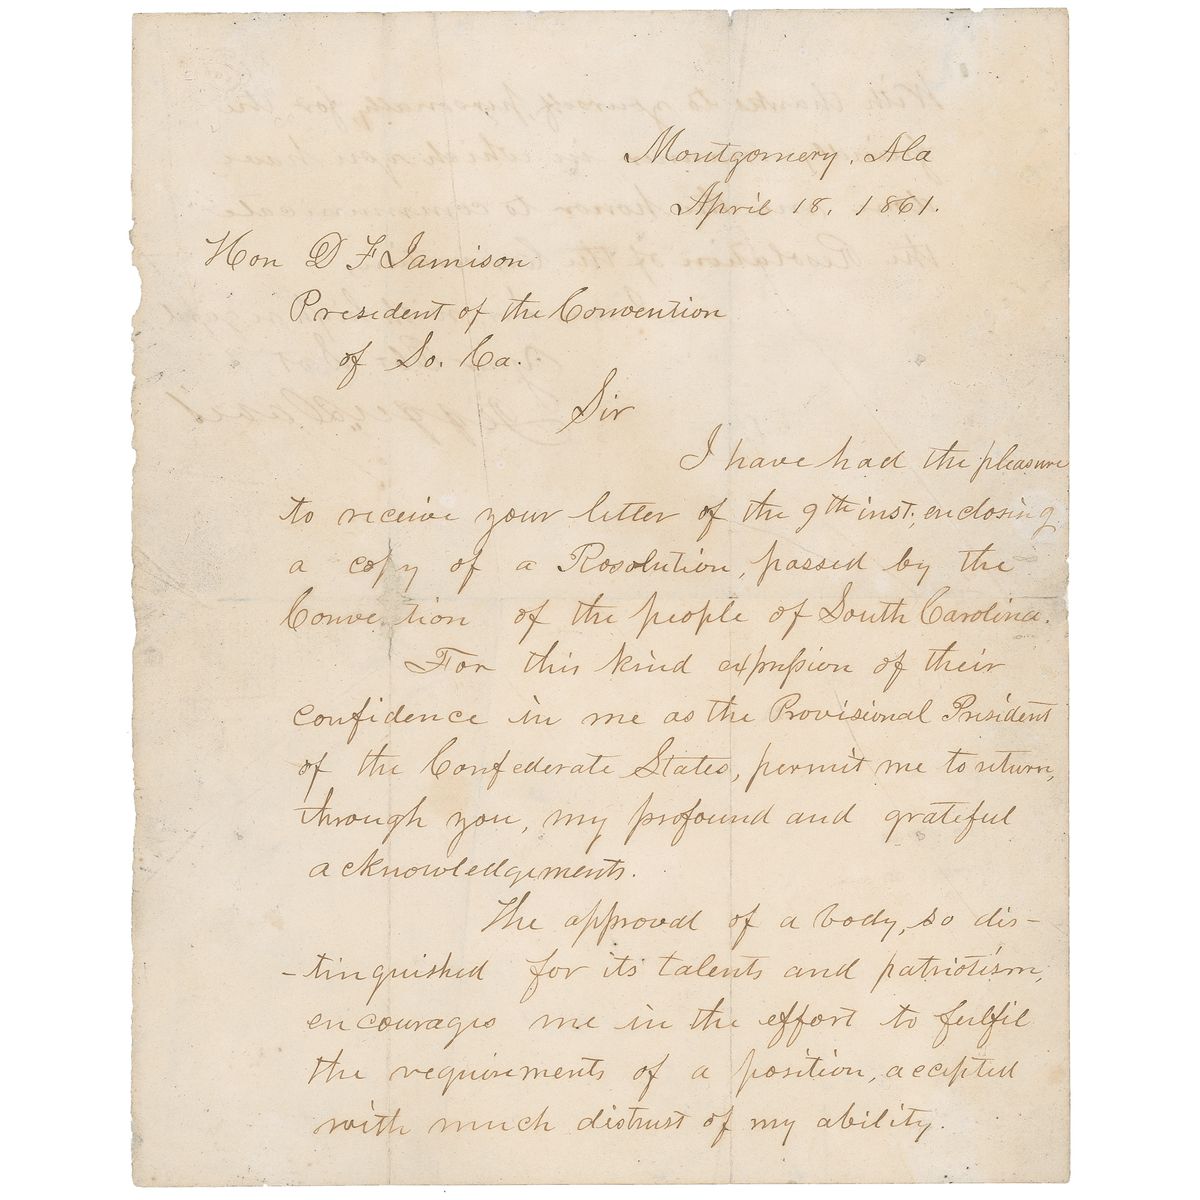 Montgomery, Ala
April 18, 1861.
Hon D F Jamison
President of the Convention
of So. Ca.
Sir
I have had the pleasure
to receive your letter of the 9th inst., enclosing
a copy of a Resolution, passed by the
Convention of the people of South Carolina.
For this kind expression of their
confidence in me as the Provisional President
of the Confederate States, permit me to return,
through you, my profound and grateful
acknowledgements.
The approval of a body, so dis-
-tinguished for its talents and patriotism,
encourages me in the effort to fulfil
the requirements of a position, accepted
with much distrust of my ability.